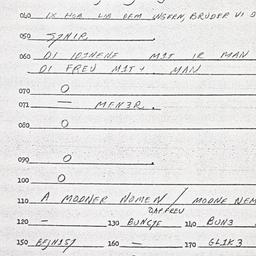 040 IX HOB LIB DEM UNSERN, BRUDER VI D
050 SJNIR.
060 DI IDINENE MIT IR MAN
DI FREU MIT MAN
070 O
071 — MENER.
080 O
090 O
100 O
110 A MODNER NOMEN / MODNE NEM
120 — 130 BUNCJE 140 BUN3
150 160 — 170 GLIK3